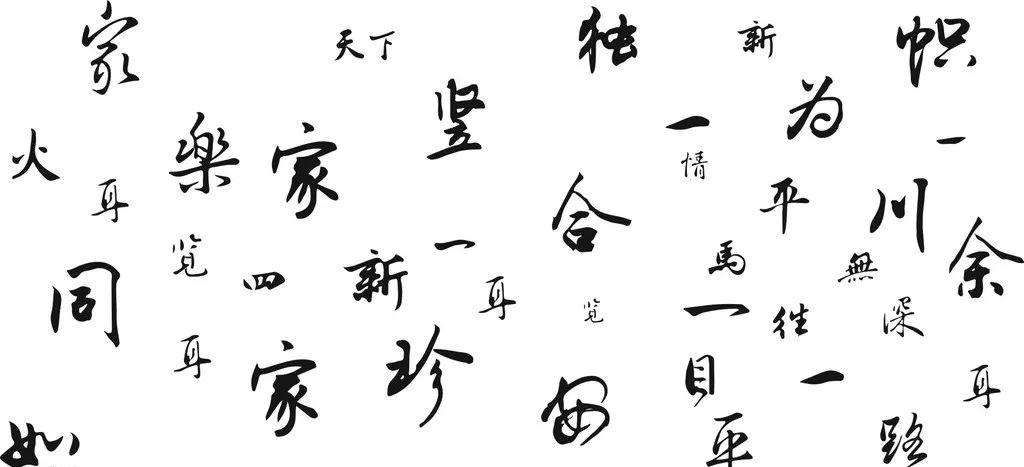 家
天下
独
新
帜
竖
为
火
樂
家
一
一
情
耳
平
川
合
余
览
四
新
一
馬
無
同
耳
览
一
往
深
耳
家
珍
安
目
一
耳
如
平
路